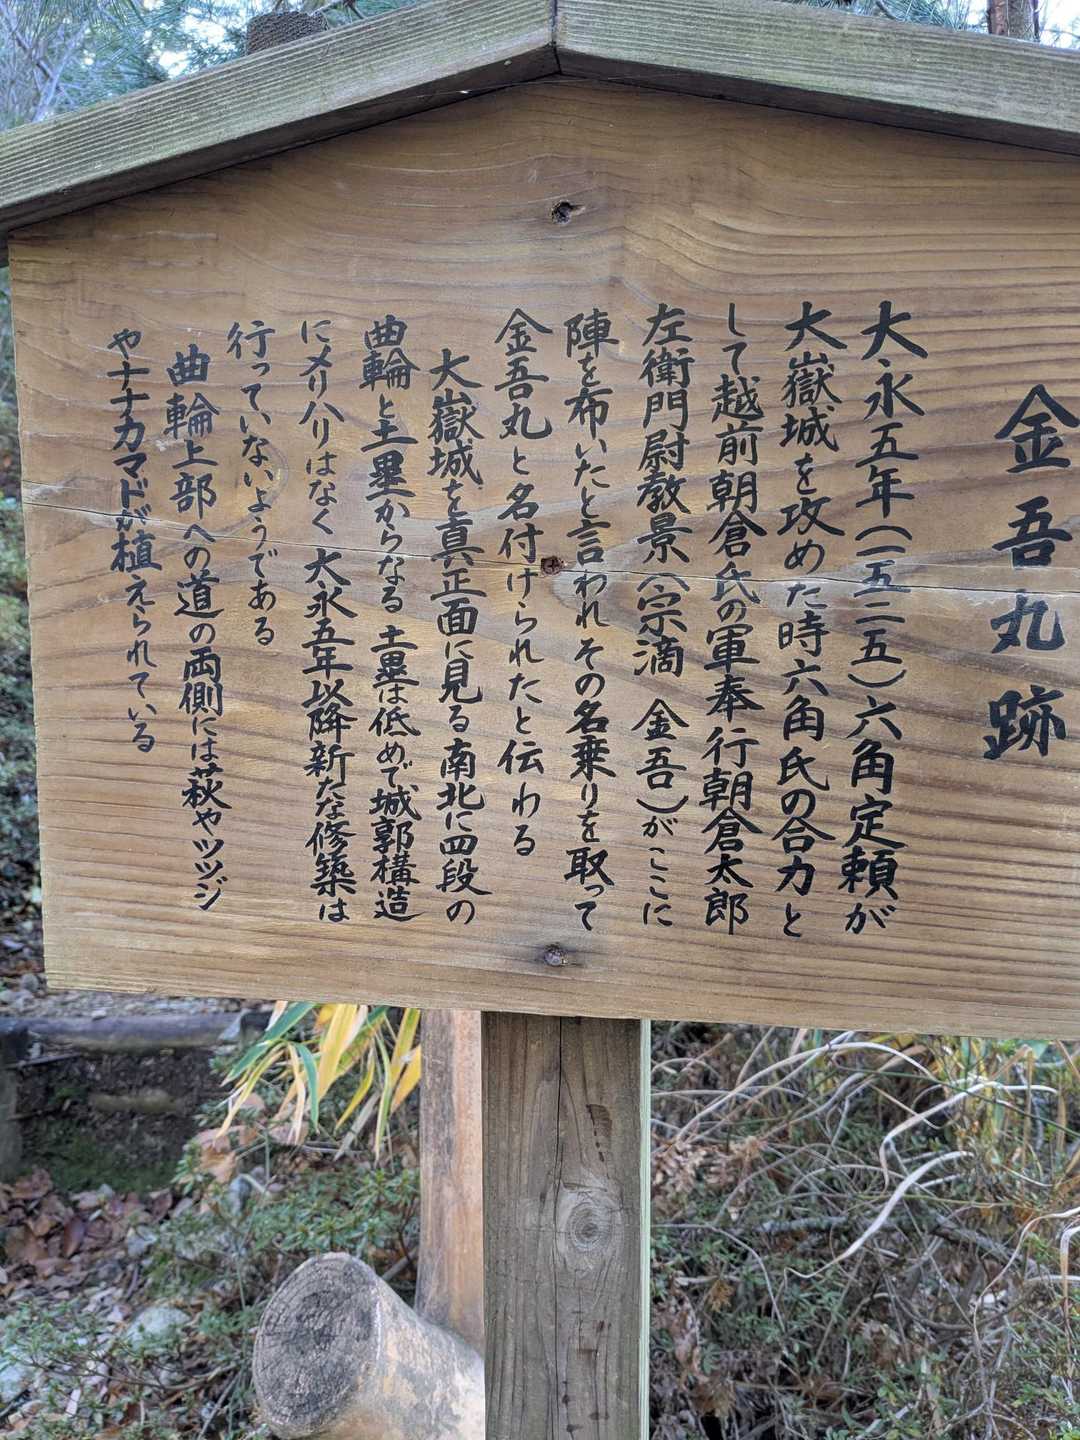 金吾丸跡
大永五年(一五二五)六角定頼が
大嶽城を攻めた時六角氏の合力と
して越前朝倉氏の軍奉行朝倉太郎
左衛門尉教景(宗滴 金吾)がここに
陣を布いたと言われその名乗りを取って
金吾丸と名付けられたと伝わる
大嶽城を真正面に見る南北に四段の
曲輪と土塁からなる 土塁は低めで城郭構造
にメリハリはなく 大永五年以降新たな修築は
行っていないようである
曲輪上部への道の両側には萩やツツジ
やナナカマドが植えられている